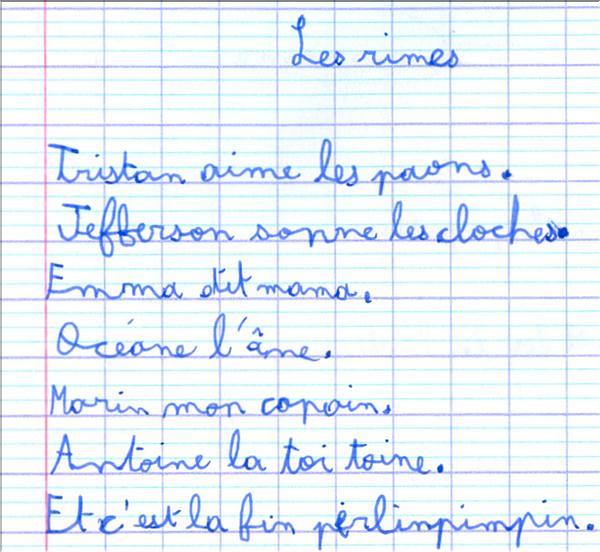 Les rimes
Tristan aime les paons.
Jefferson sonne les cloches.
Emma dit mama.
Océane l'âne.
Marin mon copain.
Antoine la toi toine.
Et c'est la fin pèrlinpimpin.